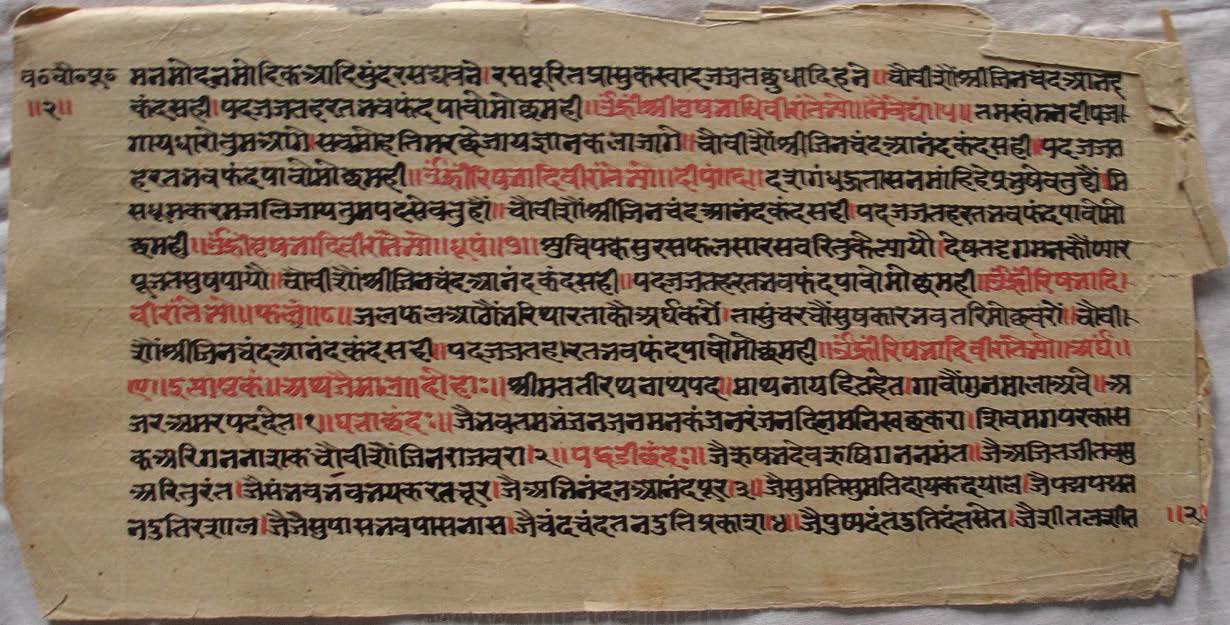 व॰चौ॰पू॰ मनमोदनमोदिकआदिसुंदरसद्यवने।रसपूरितप्रासुकस्वादजजतछुधादिहने॥चौवीशौंश्रीजिनचंदआनंद
॥२॥ कंदसही।पदजजतहरतभवफंदपावोमोछमही॥ॐह्रींश्रीवृषभाधिवीरांतेभ्यो॥नैवेद्यं॥५॥तमखंडनदीपजा
गायधारोंतुमआगे।सवमोहतिमरछैजायज्ञानकलाजागे॥चौवीशौंश्रीजिनचंदआनंदकंदसही॥पदजजत
हरतभवफंदपावोमोछमही॥ॐह्रींरिषभादिवीरांतेभ्यो॥दीपं॥६॥दशगंधहुताशनमांहिहेप्रभुषेवतुहौं।मि
सधूमकरमजलिजायतुमपदसेवतुहौं॥चौवीशौंश्रीजिनचंदआनंदकंदसही।पदजजतहरतभवफंदपावोमो
छमही॥ॐह्रींवृषभादिवीरांतेभ्यो॥धूपं॥७॥सुचिपक्वसुरसफलसारसवरितुकेल्यायौ।देषतदृगमनकौंप्यार
पूजतसुषपायौ॥चौवीशौंश्रीजिनचंदआनंदकंदसही॥पदजजतहरतभवफंदपावोमोछमही॥ॐह्रींरिषभादि।
वीरांतेभ्यो॥फलं॥८॥जलफलआठौंभरिथारताकौअर्घकरों।तासुंचरचौंसुषकारभवतरिमोछवरों॥चौवी।
शौंश्रीजिनचंदआनंदकंदसही॥पदजजतहरतभवफंदपावोमोछमही॥ॐह्रींरिषभादिवीरांतेभ्यो॥अर्घं॥
९॥इत्याष्टकं॥अथजैमाला॥दोहाः॥श्रीमततीरथनाथपद॥माथनायहितहेत।गावौंगुनमालाअवै॥अ
जरअमरपददेत।१॥घत्ताछंदः॥जैभवतमभंजनजनमनकंजनरंजनदिनमनिस्वछकरा।शिवमगपरकास
कअरिगननाशकचौवीशौंजिनराजवरा।२॥पद्धडीछंदः॥जैऋषभदेवऋषिगननमंत।जैअजितजीतवसु
अरितुरंत।जैसंभवभवभयकरतचूर।जैअभिनंदनआनंदपूर।३॥जैसुमतिसुमतिदायकदयाल।जैपद्मपद्म
नदुतिरशाल।जैजैसुपासभवपासनास।जैचंदचंदतनदुतिप्रकाश।४।जैपुष्पदंतदुतिदंतसेत।जैशीतलशीत ॥२